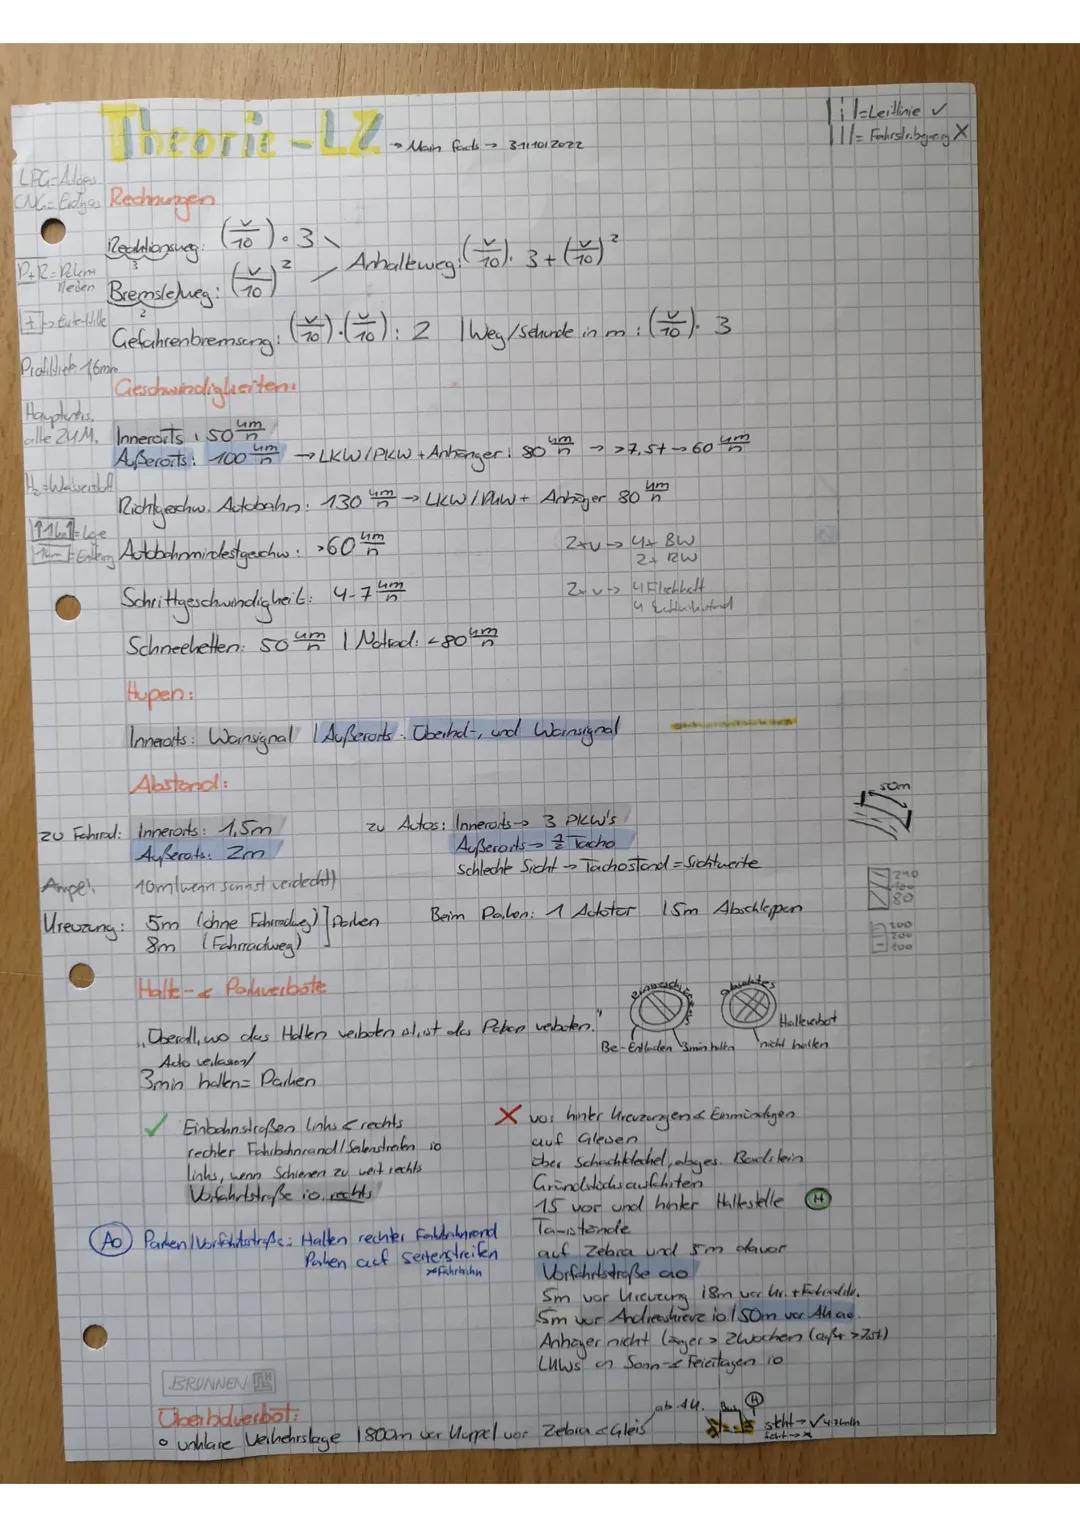 Theorie-LZ → Main facts → 31/10/2022
| ¦ | = Leitlinie ✓
| | | = Fahrstr.begrenz X
LPG = Autogas
CNG = Erdgas
Rechnungen
Reaktionsweg: (v/10) · 3
Anhalteweg: (v/10) · 3 + (v/10)²
Bremsweg: (v/10)²
P+R =
+ → Erste-Hilfe
Gefahrenbremsung: (v/10) · (v/10) : 2 | Weg/Sekunde in m: (v/10) · 3
Profiltiefe 1,6mm
Geschwindigkeiten:
Hauptunts.
alle 24M.
Innerorts: 50 km/h
Außerorts: 100 km/h → LKW/PKW + Anhänger: 80 km/h → >7,5t → 60 km/h
H₂ = Wasserstoff
Richtgeschw. Autobahn: 130 km/h → LKW/PKW + Anhänger 80 km/h
Autobahnmindestgeschw: >60 km/h
2xv → 4x BW
2x RW
Schrittgeschwindigkeit: 4-7 km/h
2xv → 4 Fliehkraft
Schneeketten: 50 km/h | Notrad: <80 km/h
Hupen:
Innerorts: Warnsignal | Außerorts: Überhol-, und Warnsignal
Abstand:
50m
zu Fahrrad: Innerorts: 1,5m
Außerorts: 2m
zu Autos: Innerorts → 3 PKW's
Außerorts → ½ Tacho
Schlechte Sicht → Tachostand = Sichtweite
Ampel: 10m (wenn sonnst verdeckt)
240
160
80
Kreuzung: 5m (ohne Fahrradweg) ] Parken
8m (Fahrradweg)
Beim Parken: 1 Autotür | 5m Abschleppen
300
200
100
Halte- & Parkverbote
eingeschränktes
absolutes
Halteverbot
„Überall, wo das Halten verboten ist, ist das Parken verboten."
Be-Entladen 3min halten
nicht halten
Auto verlassen/
3min halten = Parken
✓ Einbahnstraßen links & rechts
rechter Fahrbahnrand/Seitenstreifen io
links, wenn Schienen zu weit rechts
Vorfahrtstraße io. rechts
X vor/hinter Kreuzungen & Einmündungen
auf Gleisen
über Schachtdeckel, abges. Bordstein
Grundstücksausfahrten
15 vor und hinter Haltestelle H
Taxistände
auf Zebra und 5m davor
Vorfahrtstraße ao
5m vor Kreuzung | 8m vor Kr. + Fahrradstr.
5m vor Andreaskreuz io | 50m vor Ak ao.
Anhänger nicht länger > 2Wochen (außer >7,5t)
LKWs an Sonn- & Feiertagen io
AO Parken/Vorfahrtstraße: Halten rechter Fahrbahnrand
Parken auf Seitenstreifen
≠ Fahrbahn
BRUNNEN
Überholverbot:
○ unklare Verkehrslage | 80m vor Kuppel vor Zebra & Gleis
Bus H
steht → ✓ 4-7km/h
fährt → x